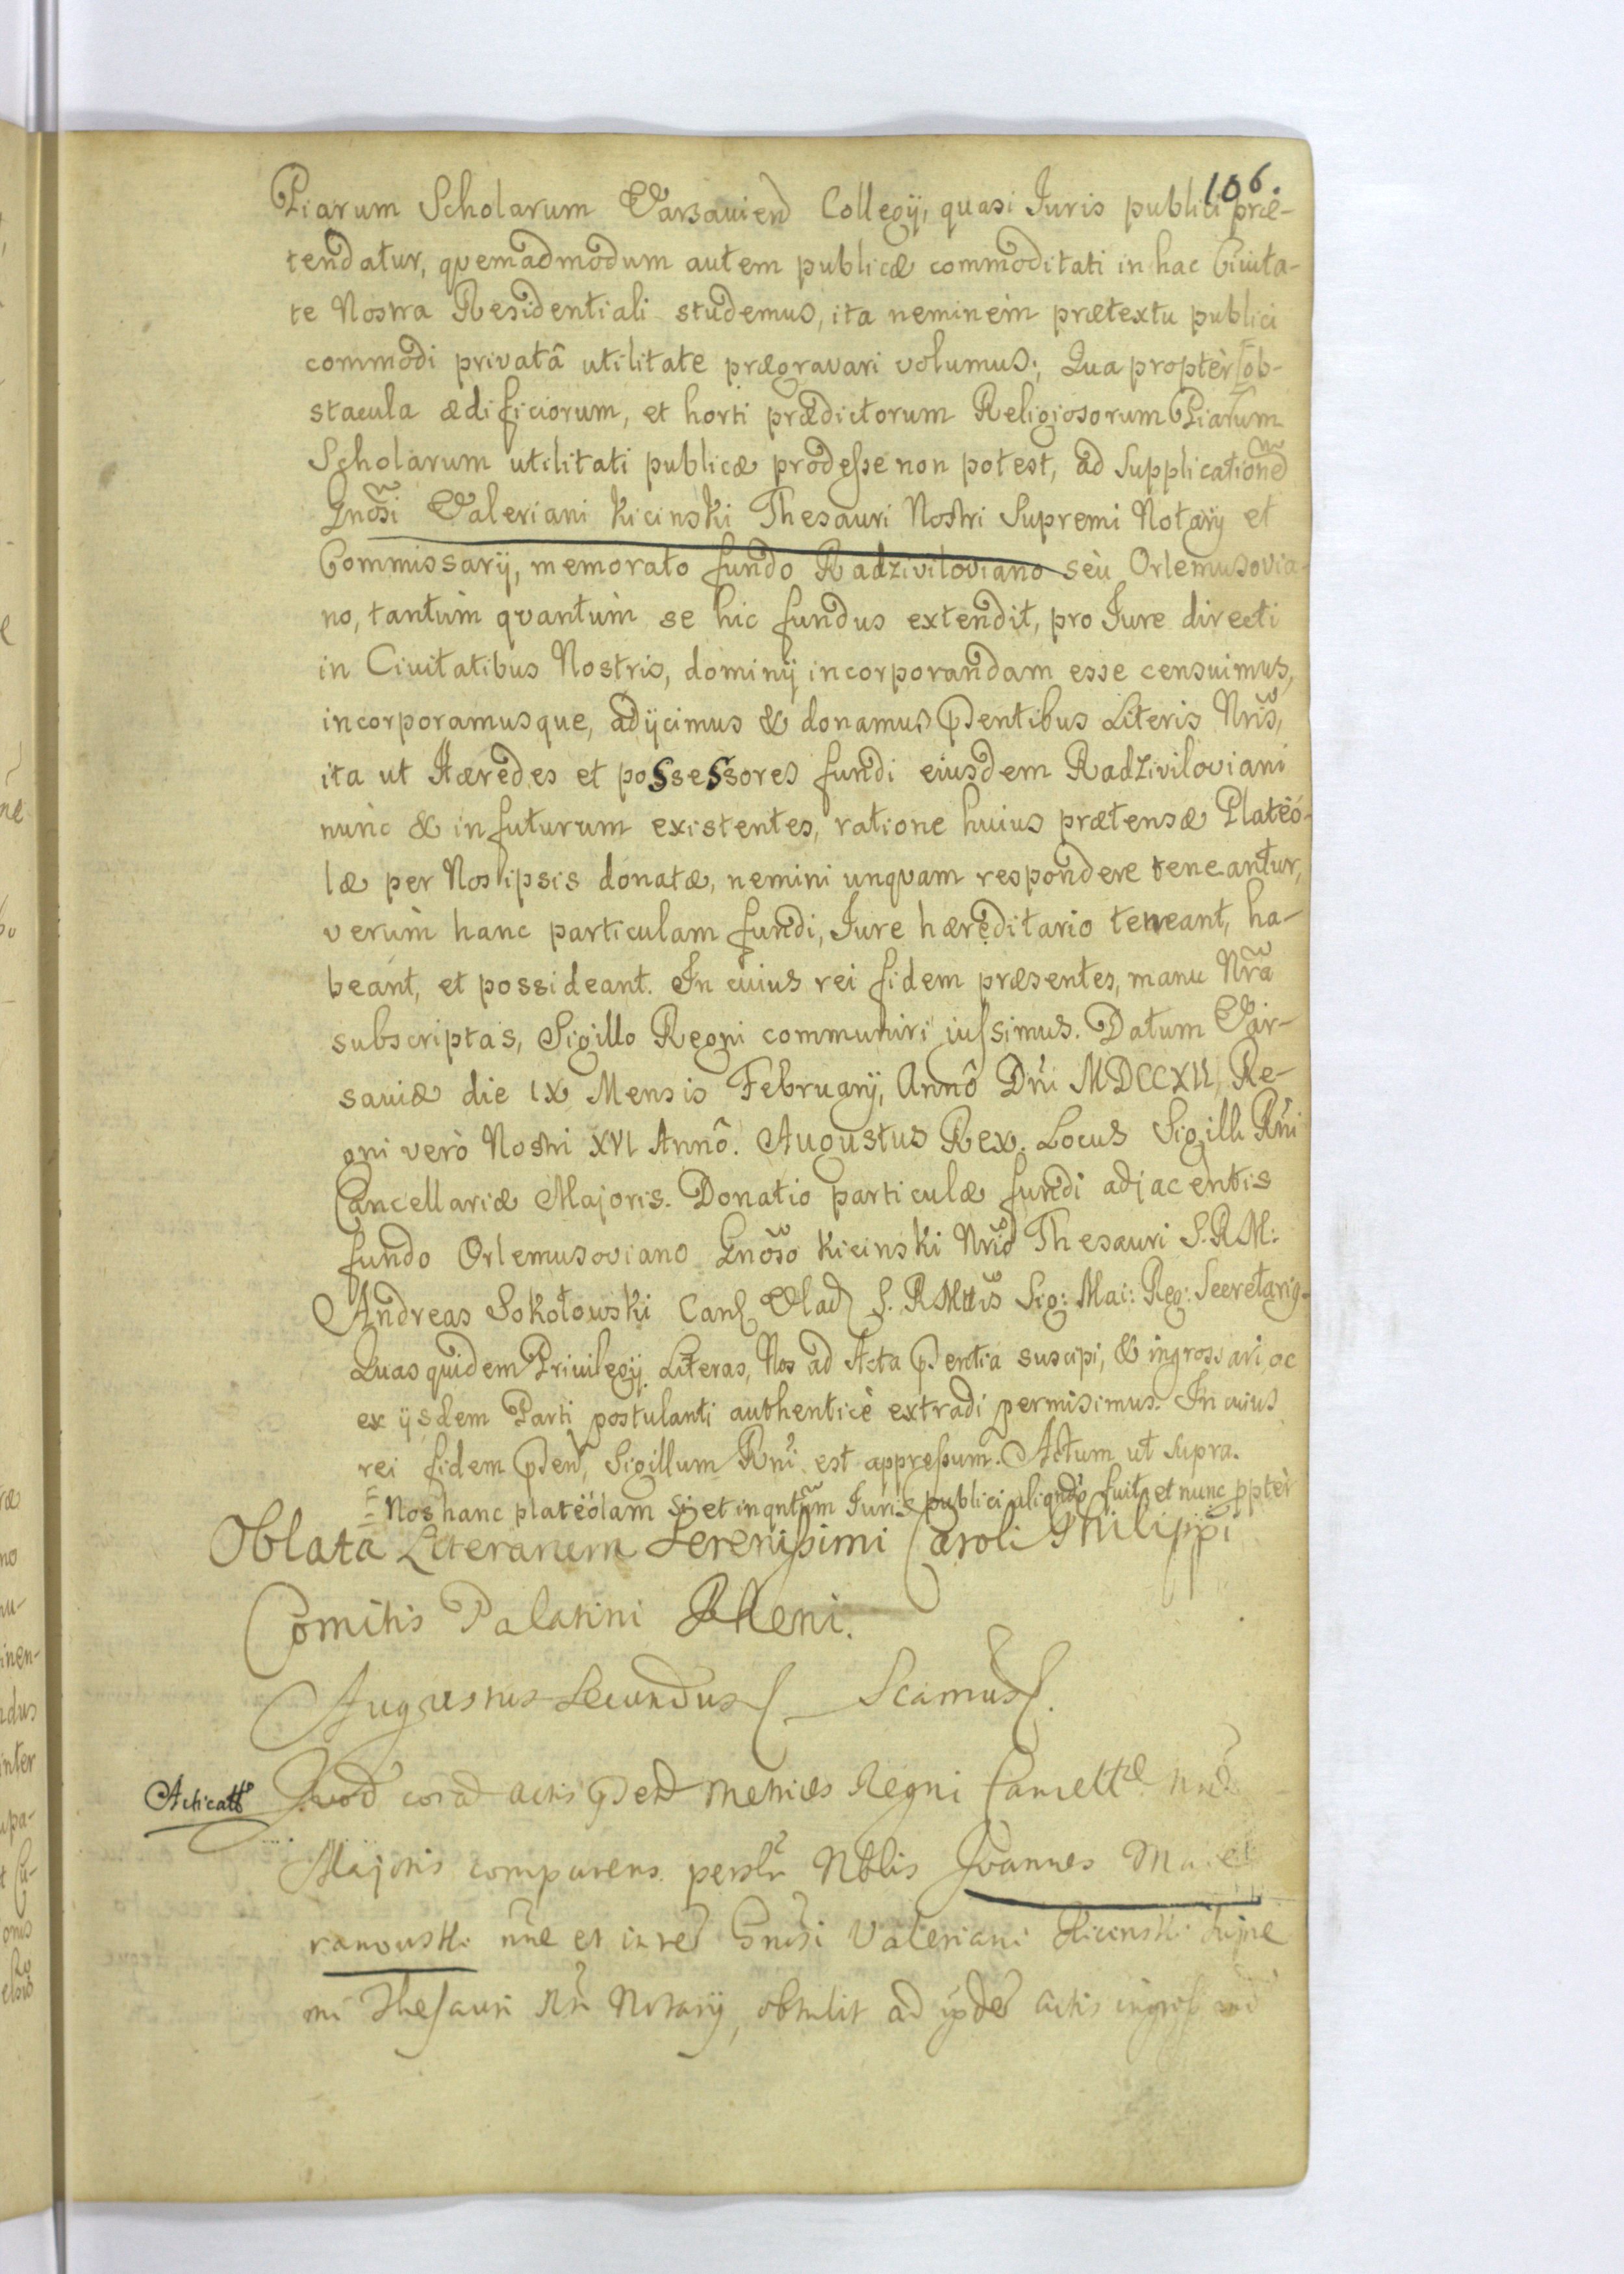 106.
Piarum Scholarum Varsavien Collegÿ, quasi Juris publici præ-
tendatur, quemadmodum autem publicæ commoditati in hac Civita-
te Nostra Residentiali studemus, ita neminem prætextu publici
commodi privatâ utilitate prægravari volumus; Qua propter ob-
stacula ædificiorum, et horti prædictorum Religiosorum Piarum
Scholarum utilitati publicæ prodesse non potest, ad supplicatione
Gnosi Valeriani Kicinski Thesauri Nostri Supremi Notarÿ et
Commissarÿ, memorato fundo Radziviloviano seù Orlemusovia-
no, tantùm qvantùm se hic fundus extendit, pro Jure directi
in Civitatibus Nostris, dominÿ incorporandam esse censuimus,
incorporamusque, adÿcimus & donamus pentibus Literis Nris,
ita ut Hæredes et possessores fundi eiusdem Radziviloviani
nunc & in futurum existentes, ratione huius prætensæ Plateó-
læ per Nos ipsis donatæ, nemini unqvam respondere teneantur,
verùm hanc particulam fundi, Jure hæreditario teneant, ha-
beant, et possideant. In cuius rei fidem præsentes, manu Nra
subscriptas, Sigillo Regni communiri iussimus. Datum Var-
saviæ die IX Mensis Februarÿ, Annô Dni MDCCXII, Re-
gni verò Nostri XVI Annô. Augustus Rex. Locus Sigilli Rni
Cancellariæ Majoris. Donatio particulæ fundi adjacentis
fundo Orlemusoviano Gnoso Kicinski Nrio Thesauri S. R M:
Andreas Sokołowski Can Vlad S. R Mttis Sig: Mai: Reg: Secretarÿ.
Quas quidem Privilegÿ Literas, Nos ad Acta pentia suscipi, & ingrossari, ac
ex ÿsdem Parti postulanti authenticè extradi permisimus. In cuius
rei fidem pen, Sigillum Rni est appressum. Actum ut supra.
= Nos hanc plateólam si et inqntum Juris publici aliqndo fuit et nunc ppter
Oblata Literarum Serenissimi Caroli Philippi
Comitis Palatini Rheni.
Augustus Secundus Scamus.
Acticatt Quod corã actis pen Metrices Regni Cancellæ
Majoris comparens perslr Nblis Joannes
ranowski nne et in re Gnosi Valeriani Kicinski supre
mi Thesauri Ntri Notarÿ, obtulit ad actis